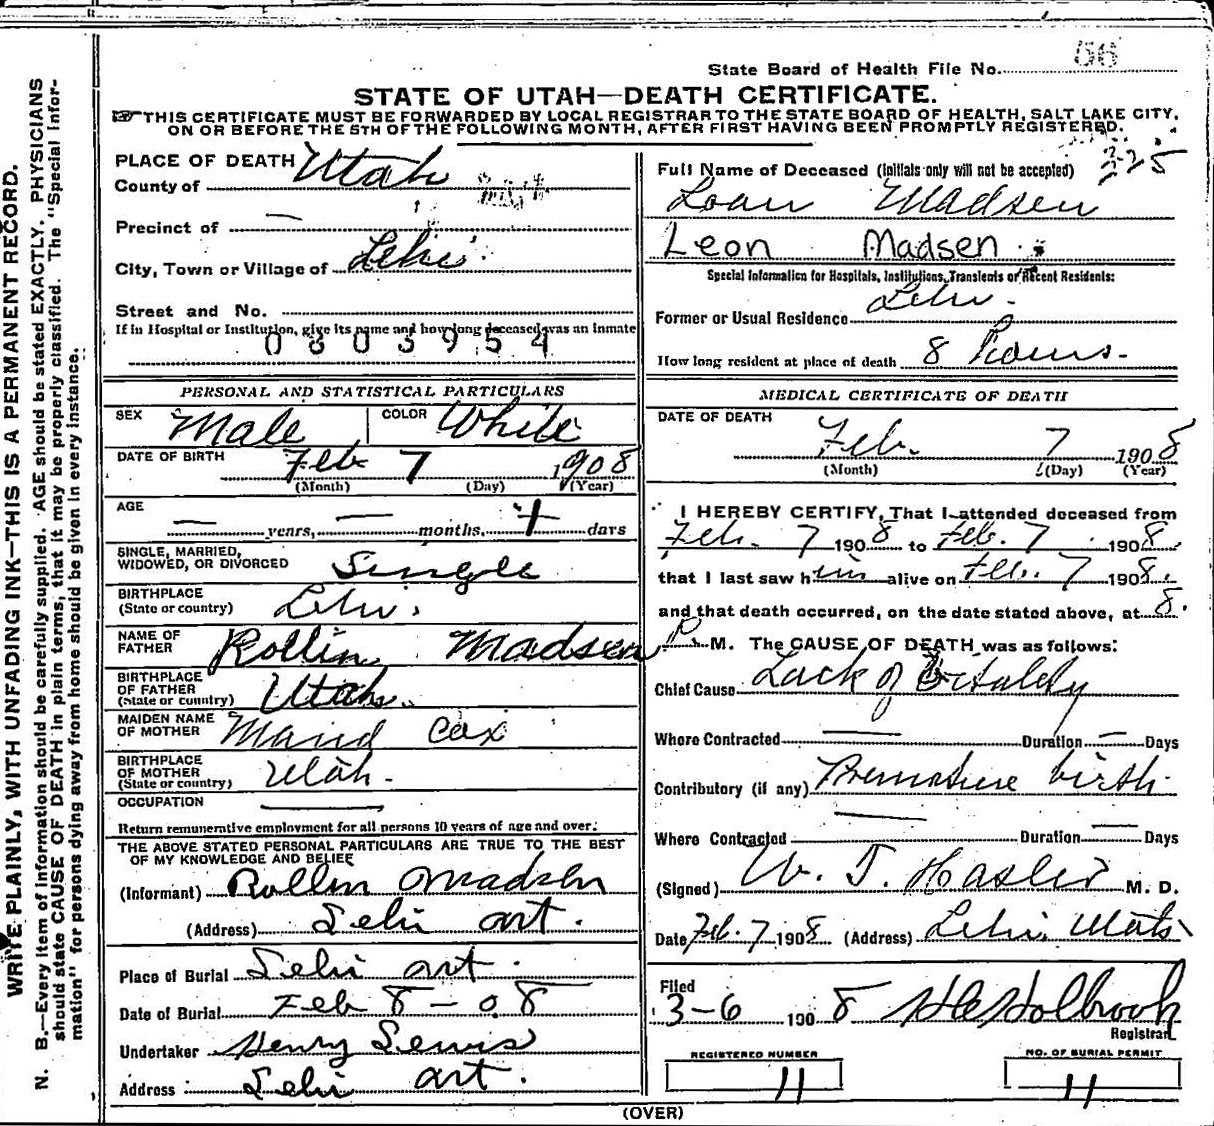 State Board of Health File No. 56
STATE OF UTAH—DEATH CERTIFICATE.
☞THIS CERTIFICATE MUST BE FORWARDED BY LOCAL REGISTRAR TO THE STATE BOARD OF HEALTH, SALT LAKE CITY,
ON OR BEFORE THE 5TH OF THE FOLLOWING MONTH, AFTER FIRST HAVING BEEN PROMPTLY REGISTERED.
WRITE PLAINLY, WITH UNFADING INK—THIS IS A PERMANENT RECORD.
N. B.—Every item of information should be carefully supplied. AGE should be stated EXACTLY. PHYSICIANS
should state CAUSE OF DEATH in plain terms, that it may be properly classified. The "Special Infor-
mation" for persons dying away from home should be given in every instance.
PLACE OF DEATH
County of Utah
Precinct of —
City, Town or Village of Lehi
Street and No.
If in Hospital or Institution, give its name and how long deceased was an inmate
0803954
PERSONAL AND STATISTICAL PARTICULARS
SEX Male COLOR White
DATE OF BIRTH Feb 7 1908
(Month) (Day) (Year)
AGE — years, — months, days
SINGLE, MARRIED,
WIDOWED, OR DIVORCED Single
BIRTHPLACE
(State or country) Lehi.
NAME OF
FATHER Rollin Madsen
BIRTHPLACE
OF FATHER
(State or country) Utah.
MAIDEN NAME
OF MOTHER Maud Cox
BIRTHPLACE
OF MOTHER
(State or country) Utah.
OCCUPATION —
Return remunerative employment for all persons 10 years of age and over.
THE ABOVE STATED PERSONAL PARTICULARS ARE TRUE TO THE BEST
OF MY KNOWLEDGE AND BELIEF
(Informant) Rollin Madsen
(Address) Lehi
Place of Burial Lehi
Date of Burial Feb 8 – 08
Undertaker Henry Lewis
Address Lehi
325
Full Name of Deceased (Initials only will not be accepted)
Loan Madsen
Leon Madsen
Special Information for Hospitals, Institutions, Transients or Recent Residents:
Former or Usual Residence Lehi.
How long resident at place of death 8 Hours.
MEDICAL CERTIFICATE OF DEATH
DATE OF DEATH
Feb. 7 1908
(Month) (Day) (Year)
I HEREBY CERTIFY, That I attended deceased from
Feb. 7 1908 to Feb. 7 1908.
that I last saw him alive on Feb. 7 1908.
and that death occurred, on the date stated above, at 8.
P. M. The CAUSE OF DEATH was as follows:
Chief Cause Lack of Vitality
Where Contracted — Duration — Days
Contributory (if any) Premature birth.
Where Contracted — Duration — Days
(Signed) W. T. Hasler M. D.
Date Feb. 7 1908. (Address) Lehi, Utah
Filed
3-6 1908 Holbrook
Registrar.
REGISTERED NUMBER
11
NO. OF BURIAL PERMIT
11
(OVER)